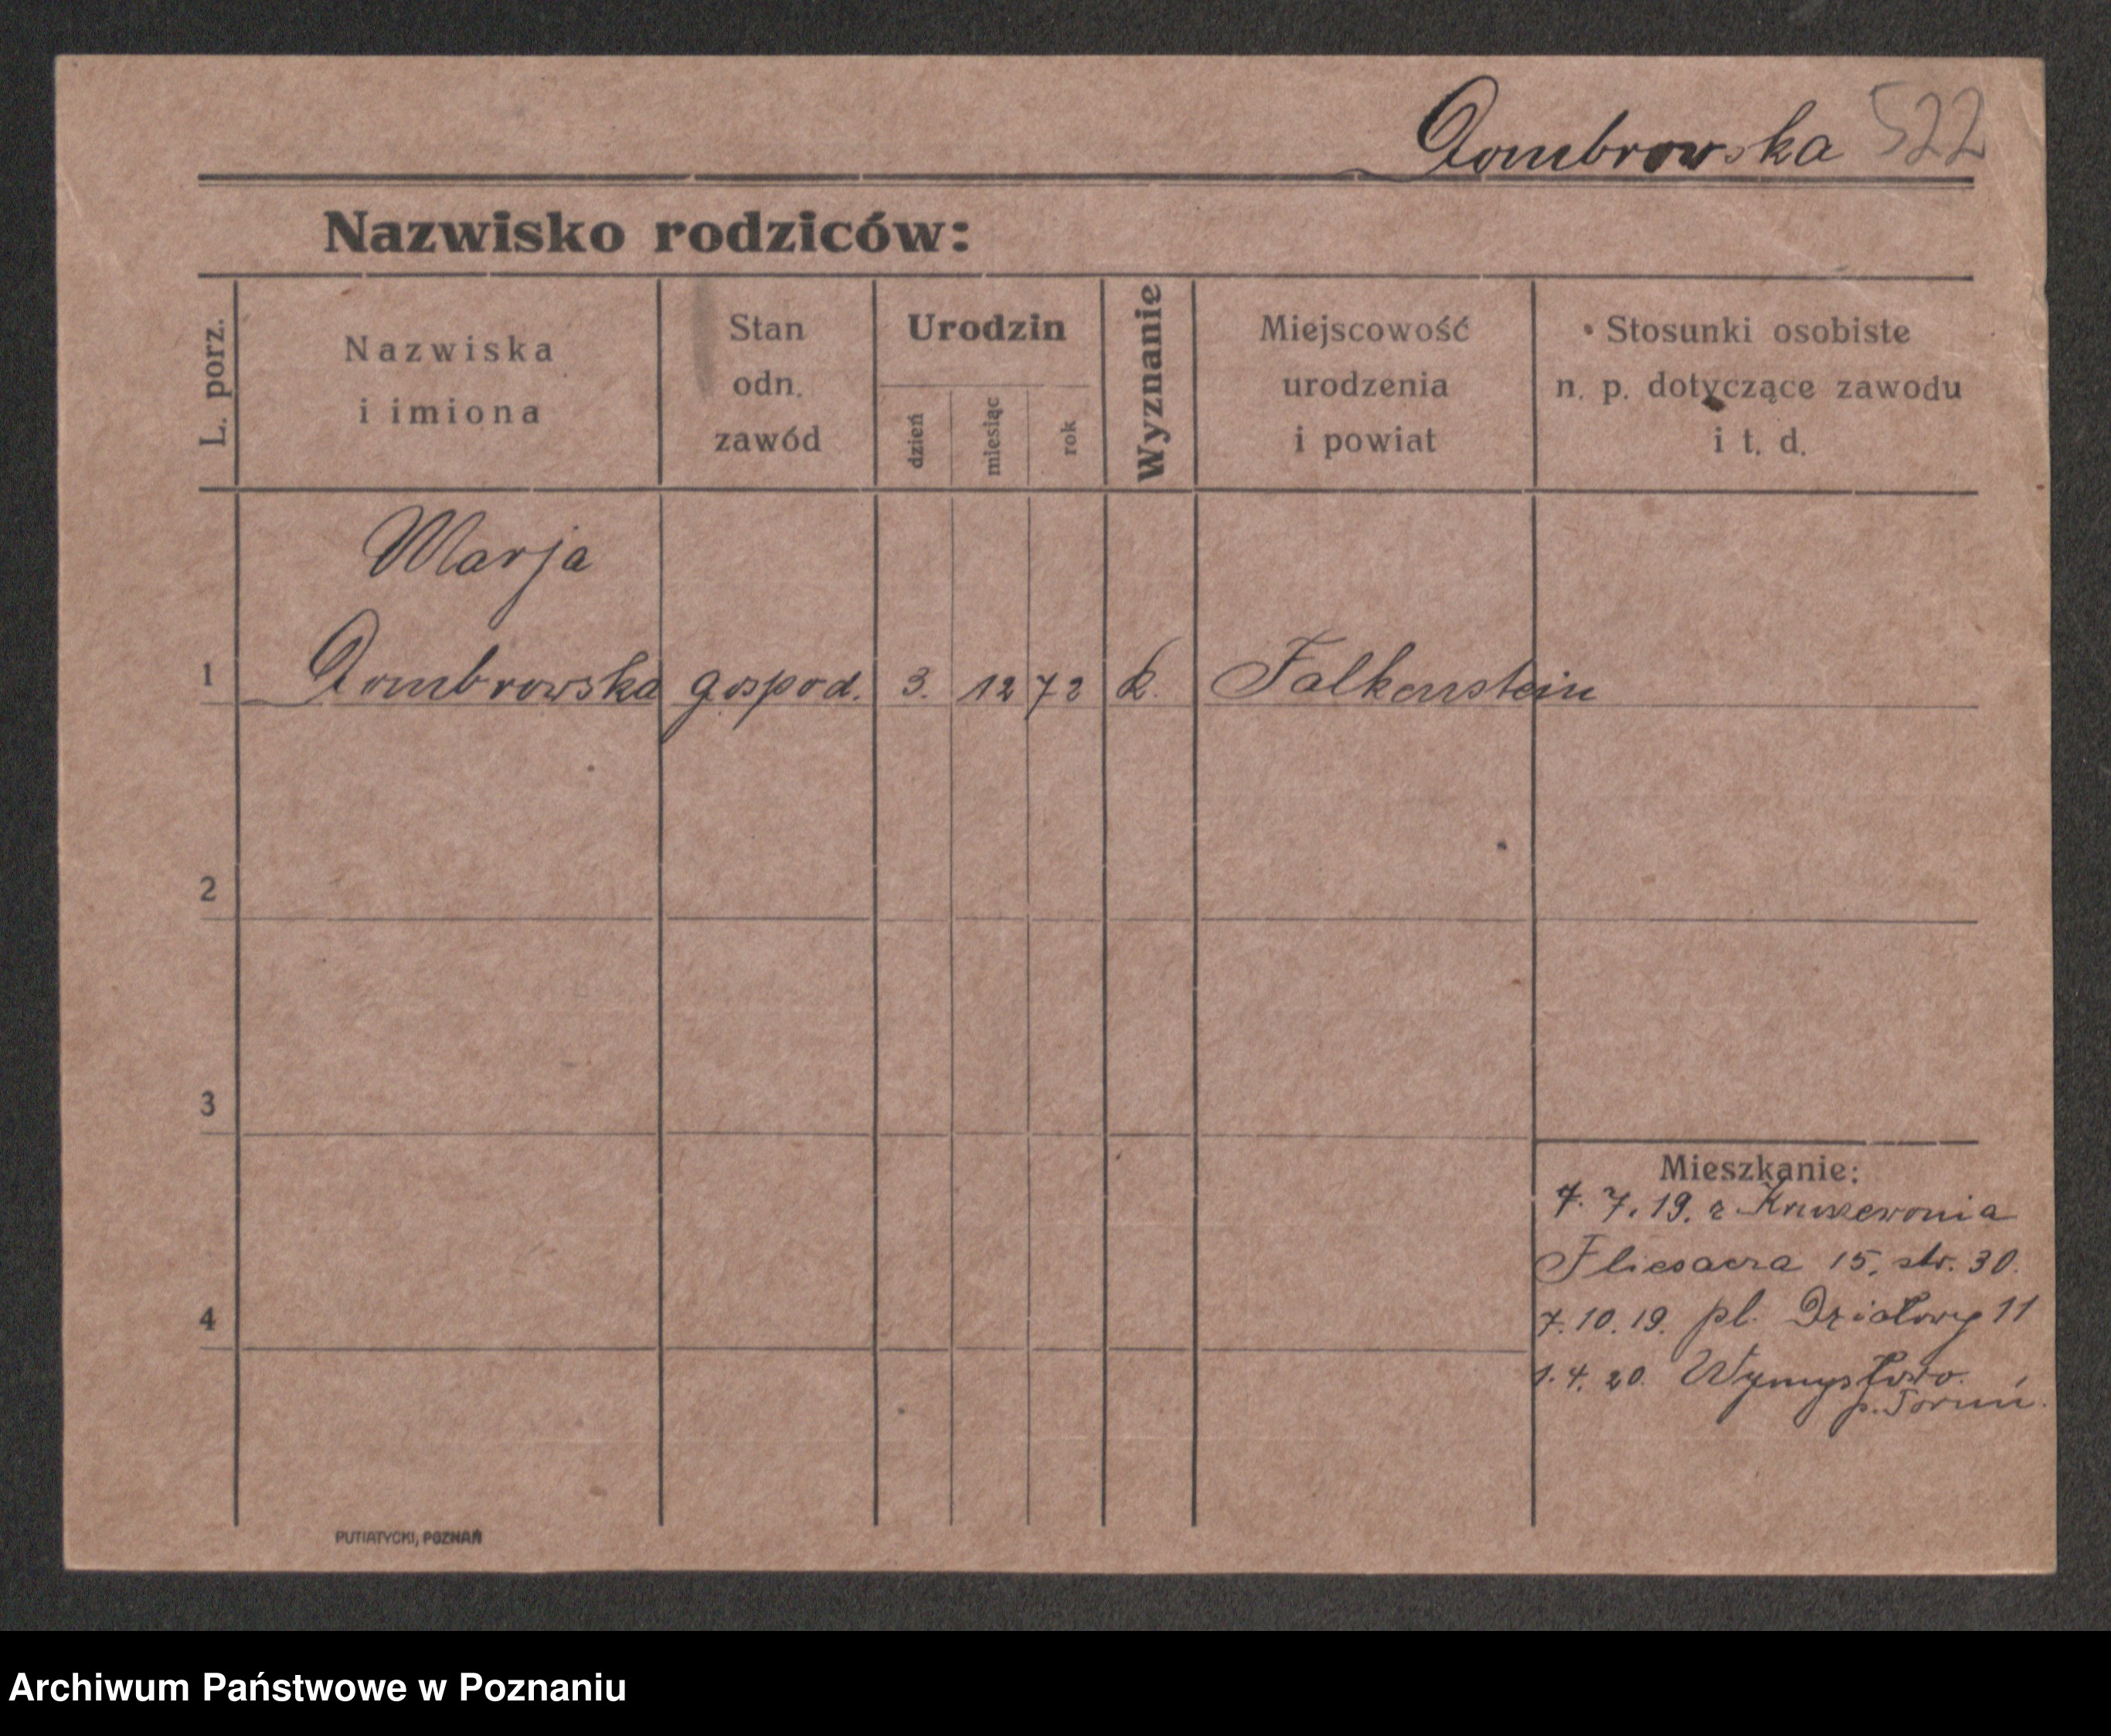 Dombrowska 522
Nazwisko rodziców:
L. porz.
Nazwiska
i imiona
Stan
odn.
zawód
Urodzin
dzień
miesiąc
rok
Wyznanie
Miejscowość
urodzenia
i powiat
Stosunki osobiste
n. p. dotyczące zawodu
i t. d.
Marja
1 Dombrowska gospod. 3. 12 72 k. Falkenstein
2
3
4
Mieszkanie:
7. 7. 19. z
15, str. 30.
7. 10. 19. pl. Działowy 11
1. 4. 20. Wymysłowo.
p. Toruń.
PUTIATYCKI, POZNAŃ
Archiwum Państwowe w Poznaniu